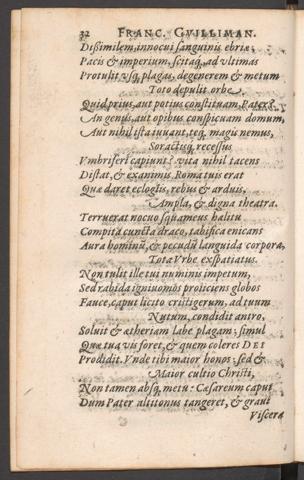 32 FRANC. GVILLIMAN.
Dißimilem, innocui sanguinis ebriæ;
Pacis & imperium, scitaq́, ad vltimas
Protulit vsq́, plagas, degenerem & metum
Toto depulit orbe.
Quid prius, aut potius constituam, Pater?
An genus, aut opibus conspicuam domum,
Aut nihil ista iuuant, teq́, magis nemus,
Soractisq́, recessus
Vmbriferi capiunt? vita nihil tacens
Distat, & exanimis. Roma tuis erat
Quæ daret eclogijs, rebus & arduis,
Ampla, & digna theatra.
Terruerat nocuo squameus halitu
Compita cuncta draco, tabifica enicans
Aura hominũ, & pecudũ languida corpora,
Tota Vrbe exspatiatus.
Non tulit ille tuj numinis impetum,
Sed rabida igniuomos proiiciens globos
Fauce, caput licito cristigerum, ad tuum
Nutum, condidit antro,
Soluit & ætheriam labe plagam; simul
Quæ tua vis foret, & quem coleres DEI
Prodidit. Vnde tibi maior honos: sed &
Maior cultio Christi,
Non tamen absq́, metu: Cæsareum caput
Dum Pater altitonus tangeret, & graui
Viscera